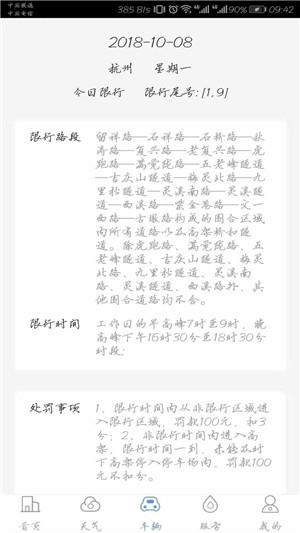 中国联通
中国电信
385 B/s
90%
09:42
2018-10-08
杭州 星期一
今日限行 限行尾号:[1,9]
限行路段
留祥路—石祥路—石桥路—秋
涛路—复兴路—老复兴路—虎
跑路—满觉陇路—五老峰隧道
—吉庆山隧道—梅灵北路—九
里松隧道—灵溪南路—灵溪隧
道—西溪路—紫金港路—文一
西路—古墩路构成的围合区域
内所有道路以及高架桥和隧
道。除虎跑路、满觉陇路、五
老峰隧道、吉庆山隧道、梅灵
北路、九里松隧道、灵溪南
路、灵溪隧道、西溪路外，其
他围合道路均不含。
限行时间
工作日的早高峰7时至9时，晚
高峰下午16时30分至18时30分
时段；
处罚事项
1、限行时间内从非限行区域进
入限行区域，罚款100元，扣3
分；2、非限行时间内进入高
架，限行时间一到，未能及时
下高架停入停车场内，罚款100
元不扣分。
首页 天气 车辆 服务 我的